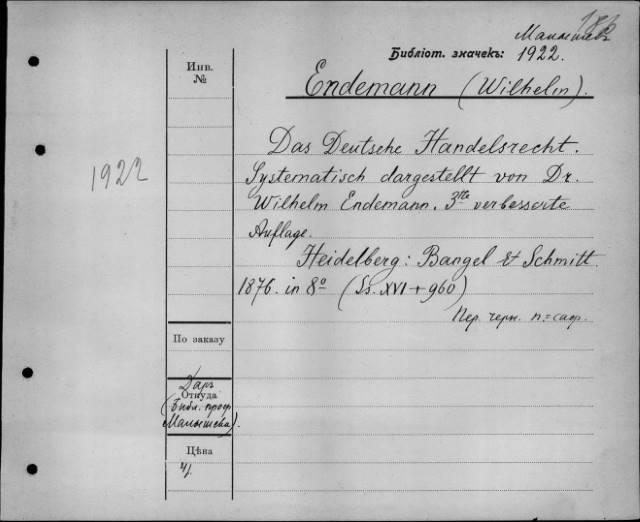 Малышев
Библіот. значекъ: 1922.
Инв.
№
Endemann (Wilhelm).
1922
Das Deutsche Handelsrecht.
Systematisch dargestellt von Dr.
Wilhelm Endemann. 3te verbesserte
Auflage.
Heidelberg: Bangel & Schmitt.
1876. in 8o (Ss. XVI + 960)
Пер. черн. п=саф.
По заказу
Даръ
Откуда
(Библ. проф.
Малышева).
Цѣна